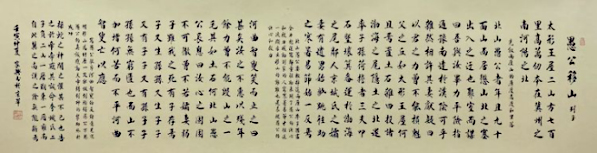 愚公移山 列子
太形王屋二山方七百
里高萬仞本在冀州之
南河陽之北
北山愚公者年且九十
面山而居懲山北之塞
出入之迂也聚室而謀
曰吾與汝畢力平險指
通豫南達于漢陰可乎
雜然相許其妻獻疑曰
以君之力曾不能損魁
父之丘如太形王屋何
且焉置土石雜曰投諸
渤海之尾隱土之北遂
率子孫荷擔者三夫叩
石墾壤箕畚運於渤海
之尾鄰人京城氏之孀
妻有遺男始齔跳往助
之寒暑易節始一反焉
河曲智叟笑而止之曰
甚矣汝之不惠以殘年
餘力曾不能毀山之一
毛其如土石何北山愚
公長息曰汝心之固固
不可徹曾不若孀妻弱
子雖我之死有子存焉
子又生孫孫又生子子
又有子子又有孫子子
孫孫無窮匱也而山不
加增何苦而不平河曲
智叟亡以應
操蛇之神聞之懼其不已也告
之於帝帝感其誠命夸娥氏二
子負二山一厝朔東一厝雍南
自此冀之南漢之陰無隴斷焉